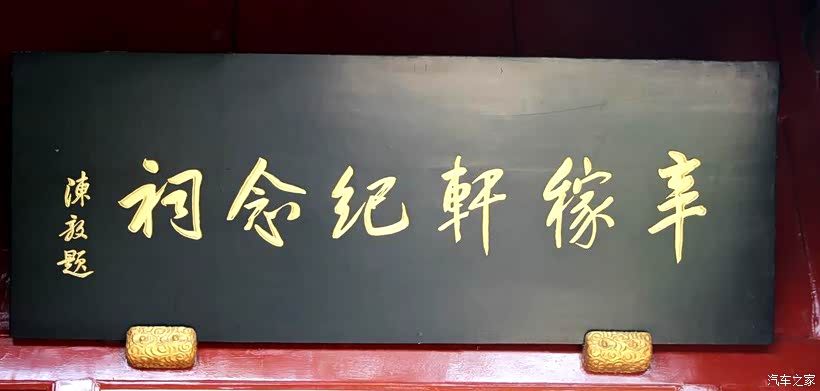 辛稼軒紀念祠
陳毅題
汽车之家